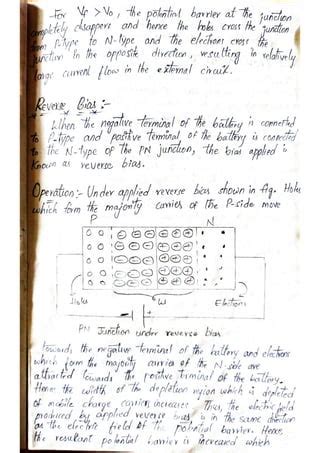 For VF > V0, the potential barrier at the junction
completely disappears and hence the holes cross the junction
from P-type to N-type and the electrons cross the
junction in the opposite direction, resulting in relatively
large current flow in the external circuit.
Reverse Bias :-
When the negative terminal of the battery is connected
to P-type and positive terminal of the battery is connected
to the N-type of the PN junction, the bias applied is
known as reverse bias.
Operation:- Under applied reverse bias shown in fig. Holes
which form the majority carries of the P-side move
P N
Holes W Electrons
PN Junction under reverse bias
towards the negative terminal of the battery and electrons
which form the majority carries of the N side are
attracted towards the positive terminal of the battery.
Hence the width of the depletion region which is depleted
of mobile charge carries increase. Thus, the electric field
produced by applied reverse bias is in the same direction
as the electric field of the potential barrier. Hence
the resultant potential barrier is increased which